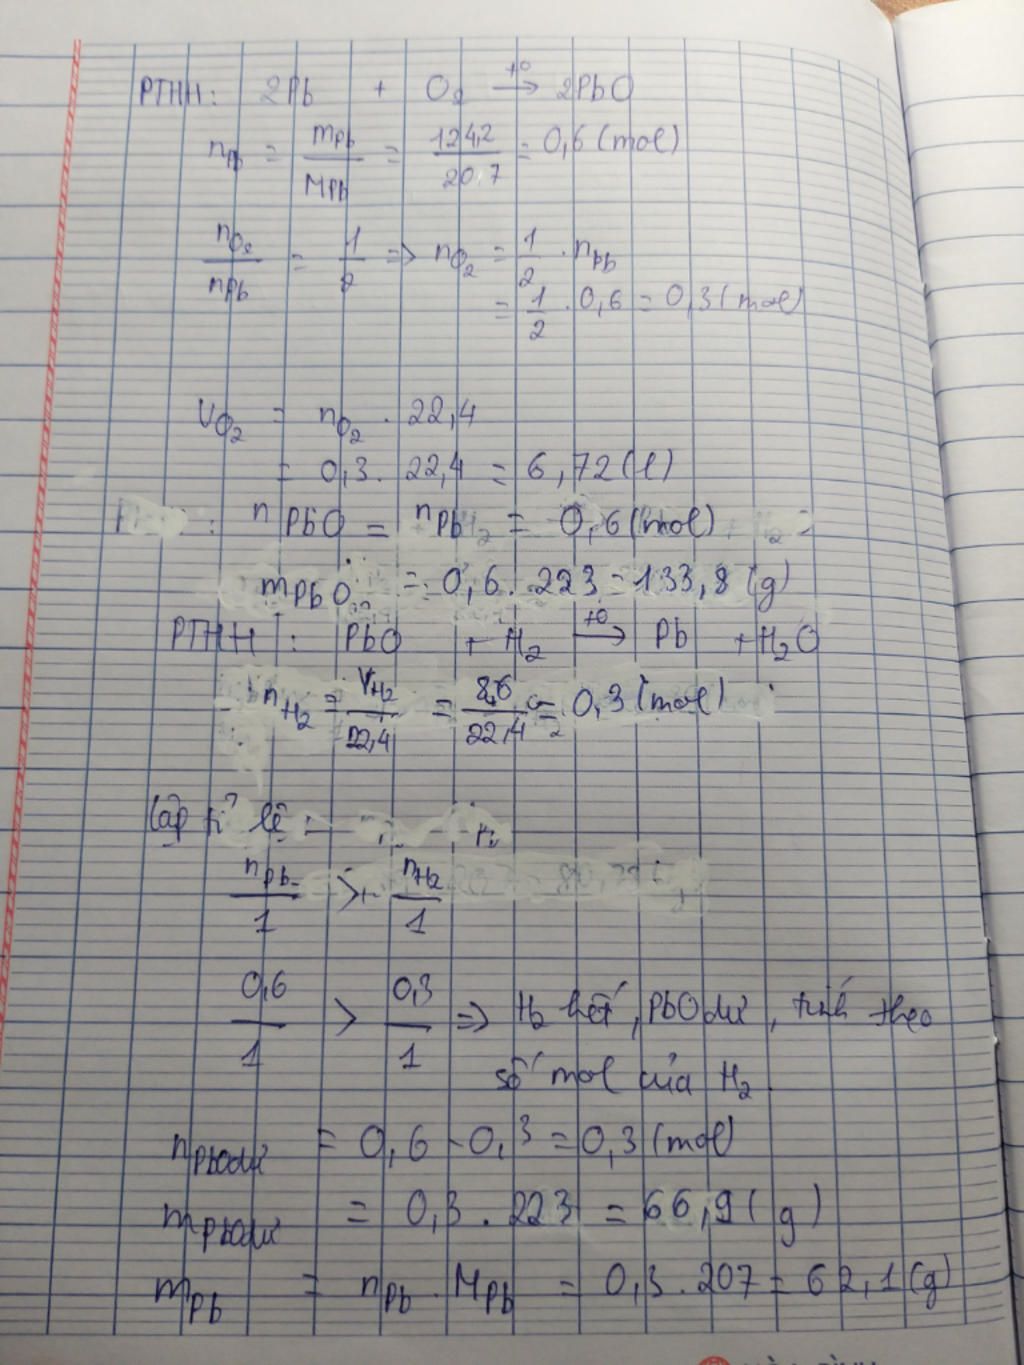 PTHH: 2Pb + O₂ →ᵗ⁰ 2PbO
nPb = mPb/MPb = 124,2/20,7 = 0,6 (mol)
nO₂/nPb = 1/2 => nO₂ = 1/2 . nPb
= 1/2 . 0,6 = 0,3 (mol)
VO₂ = nO₂ . 22,4
= 0,3 . 22,4 = 6,72 (l)
: nPbO = nPb = 0,6 (mol)
mPbO = 0,6 . 223 = 133,8 (g)
PTHH : PbO + H₂ →ᵗ⁰ Pb + H₂O
nH₂ = VH₂/22,4 = /22,4 = 0,3 (mol)
Lập tỉ lệ :
nPb/1 > nH₂/1
0,6/1 > 0,3/1 => H₂ hết, PbO dư, tính theo
số mol của H₂
nPbO dư = 0,6 - 0,3 = 0,3 (mol)
mPbO dư = 0,3 . 223 = 66,9 (g)
mPb = nPb . MPb = 0,3 . 207 = 62,1 (g)